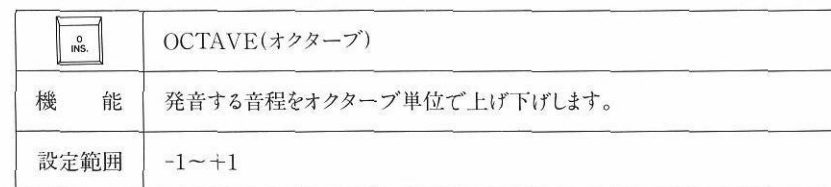 0
INS.
OCTAVE(オクターブ)
機 能
発音する音程をオクターブ単位で上げ下げします。
設定範囲
-1~+1